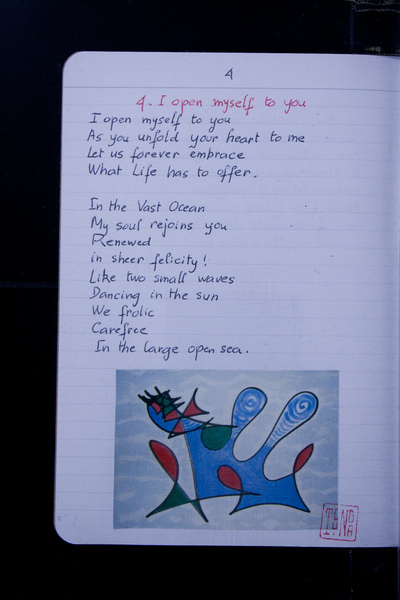 4
4. I open myself to you
I open myself to you
As you unfold your heart to me
Let us forever embrace
What Life has to offer.
In the Vast Ocean
My soul rejoins you
Renewed
in sheer felicity!
Like two small waves
Dancing in the sun
We frolic
Carefree
In the large open sea.